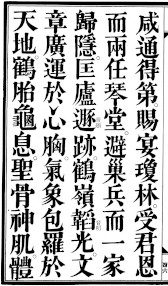 咸通得第賜宴瓊林受君恩
而兩任琴堂避巢兵而一家
歸隱匡廬遯跡鶴嶺韜光文
章廣運於心胸氣象包羅於
天地鶴胎龜息聖骨神肌體